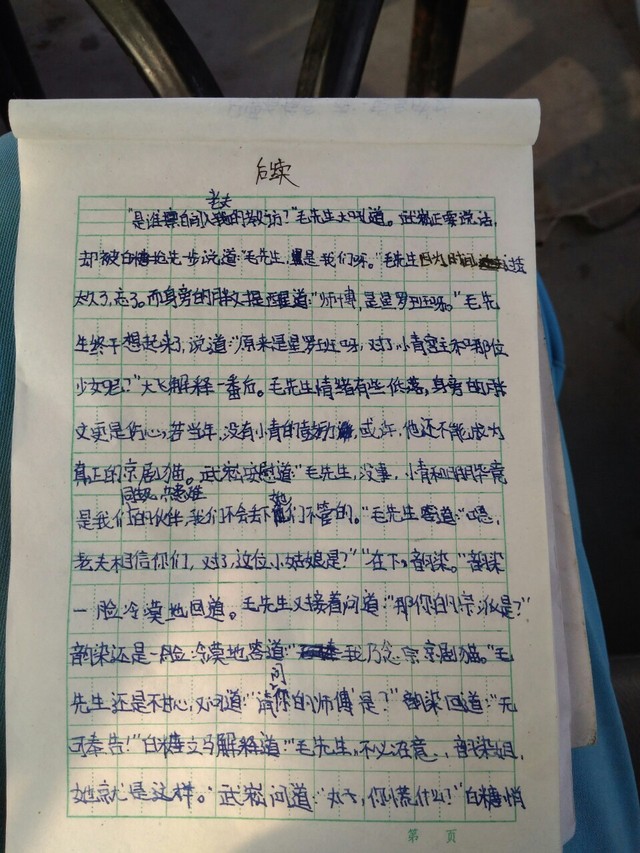 后续
老夫
"是谁擅自闯入我的教坊?"毛先生大吼道。武崧正要说话,
却被白糖抢先一步说道:"毛先生,是我们呀。"毛先生因为时间过去
太久了,忘了。而身旁的胖文提醒道:"师傅,是星罗班呀。"毛先
生终于想起来了,说道:"原来是星罗班呀,对了,小青宫主和那位
少女呢?"大飞解释一番后。毛先生情绪有些低落,身旁的胖
文更是伤心,若当年,没有小青的鼓励,或许,他还不能成为
真正的京剧猫。武崧安慰道:"毛先生,没事,小青和明月毕竟
同生死,共患难 她
是我们的伙伴,我们不会丢下们不管的。"毛先生答道:"嗯,
老夫相信你们,对了,这位小姑娘是?""在下,韵染。"韵染
一脸冷漠地回道。毛先生又接着问道:"那你的宗派是?"
韵染还是一脸冷漠地答道:"我乃念宗京剧猫。"毛
问
先生还是不甘心,又问道:"请你的师傅是?"韵染回道:"无
可奉告!"白糖立马解释道:"毛先生,不必在意,韵染姐,
她就是这样。"武崧问道:"丸子,你慌什么?"白糖悄
第 页